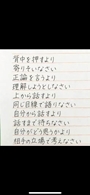 背中を押すより
寄りそいなさい
正論を言うより
理解しようとしなさい
上から話すより
同じ目線で語りなさい
自分から話すより
話すまで待ちなさい
自分がどう思うかより
相手の立場で考えなさい